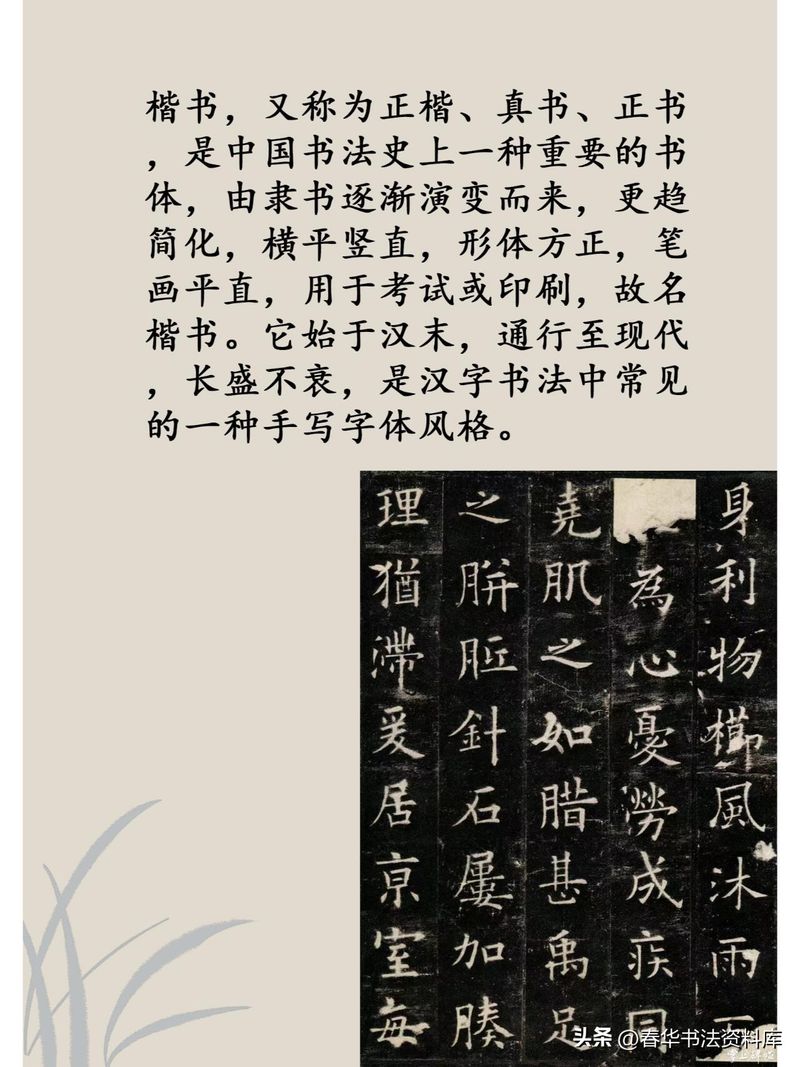 楷书，又称为正楷、真书、正书
，是中国书法史上一种重要的书
体，由隶书逐渐演变而来，更趋
简化，横平竖直，形体方正，笔
画平直，用于考试或印刷，故名
楷书。它始于汉末，通行至现代
，长盛不衰，是汉字书法中常见
的一种手写字体风格。
身利物櫛風沐雨
為心憂勞成疾同
堯肌之如腊甚禹足
之胼胝針石屢加腠
理猶滯爰居京室每
头条@春华书法资料库